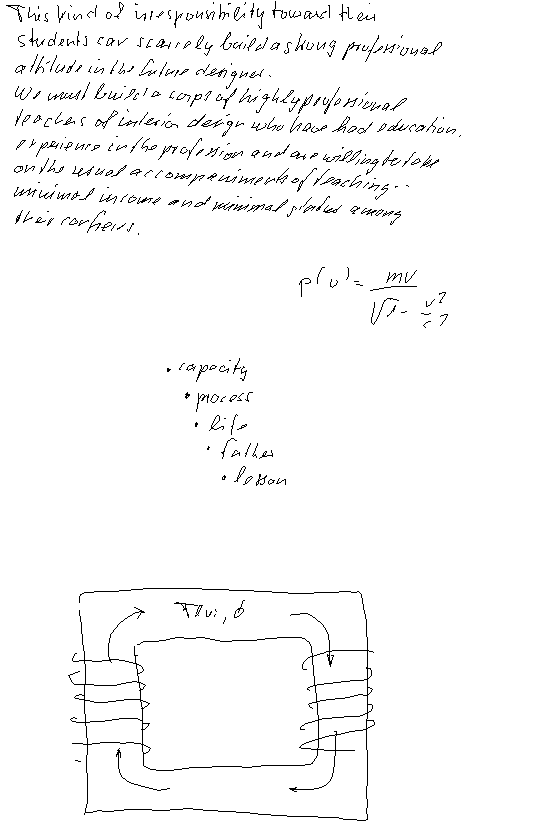 This kind of irresponsibility toward their
students can scarcely build a strong professional
attitude in the future designer.
We must build a corps of highly professional
teachers of interior design who have had education,
experience in the profession and are willing to take
on the usual accompaniments of teaching--
minimal income and minimal status among
their confreres.
p(v) = mv / √1 - v² / c²
• capacity
• process
• life
• father
• lesson